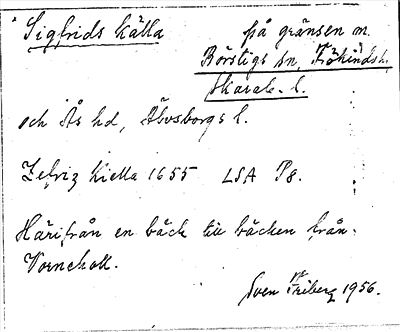 Sigfrids källa på gränsen m.
Börstigs sn, Frökinds h.
Skarab. l.
och Ås hd, Älvsborgs l.
Zefriz Kiella 1655 LSA P8.
Härifrån en bäck till bäcken från
Vornekull.
Sven Friberg 1956.